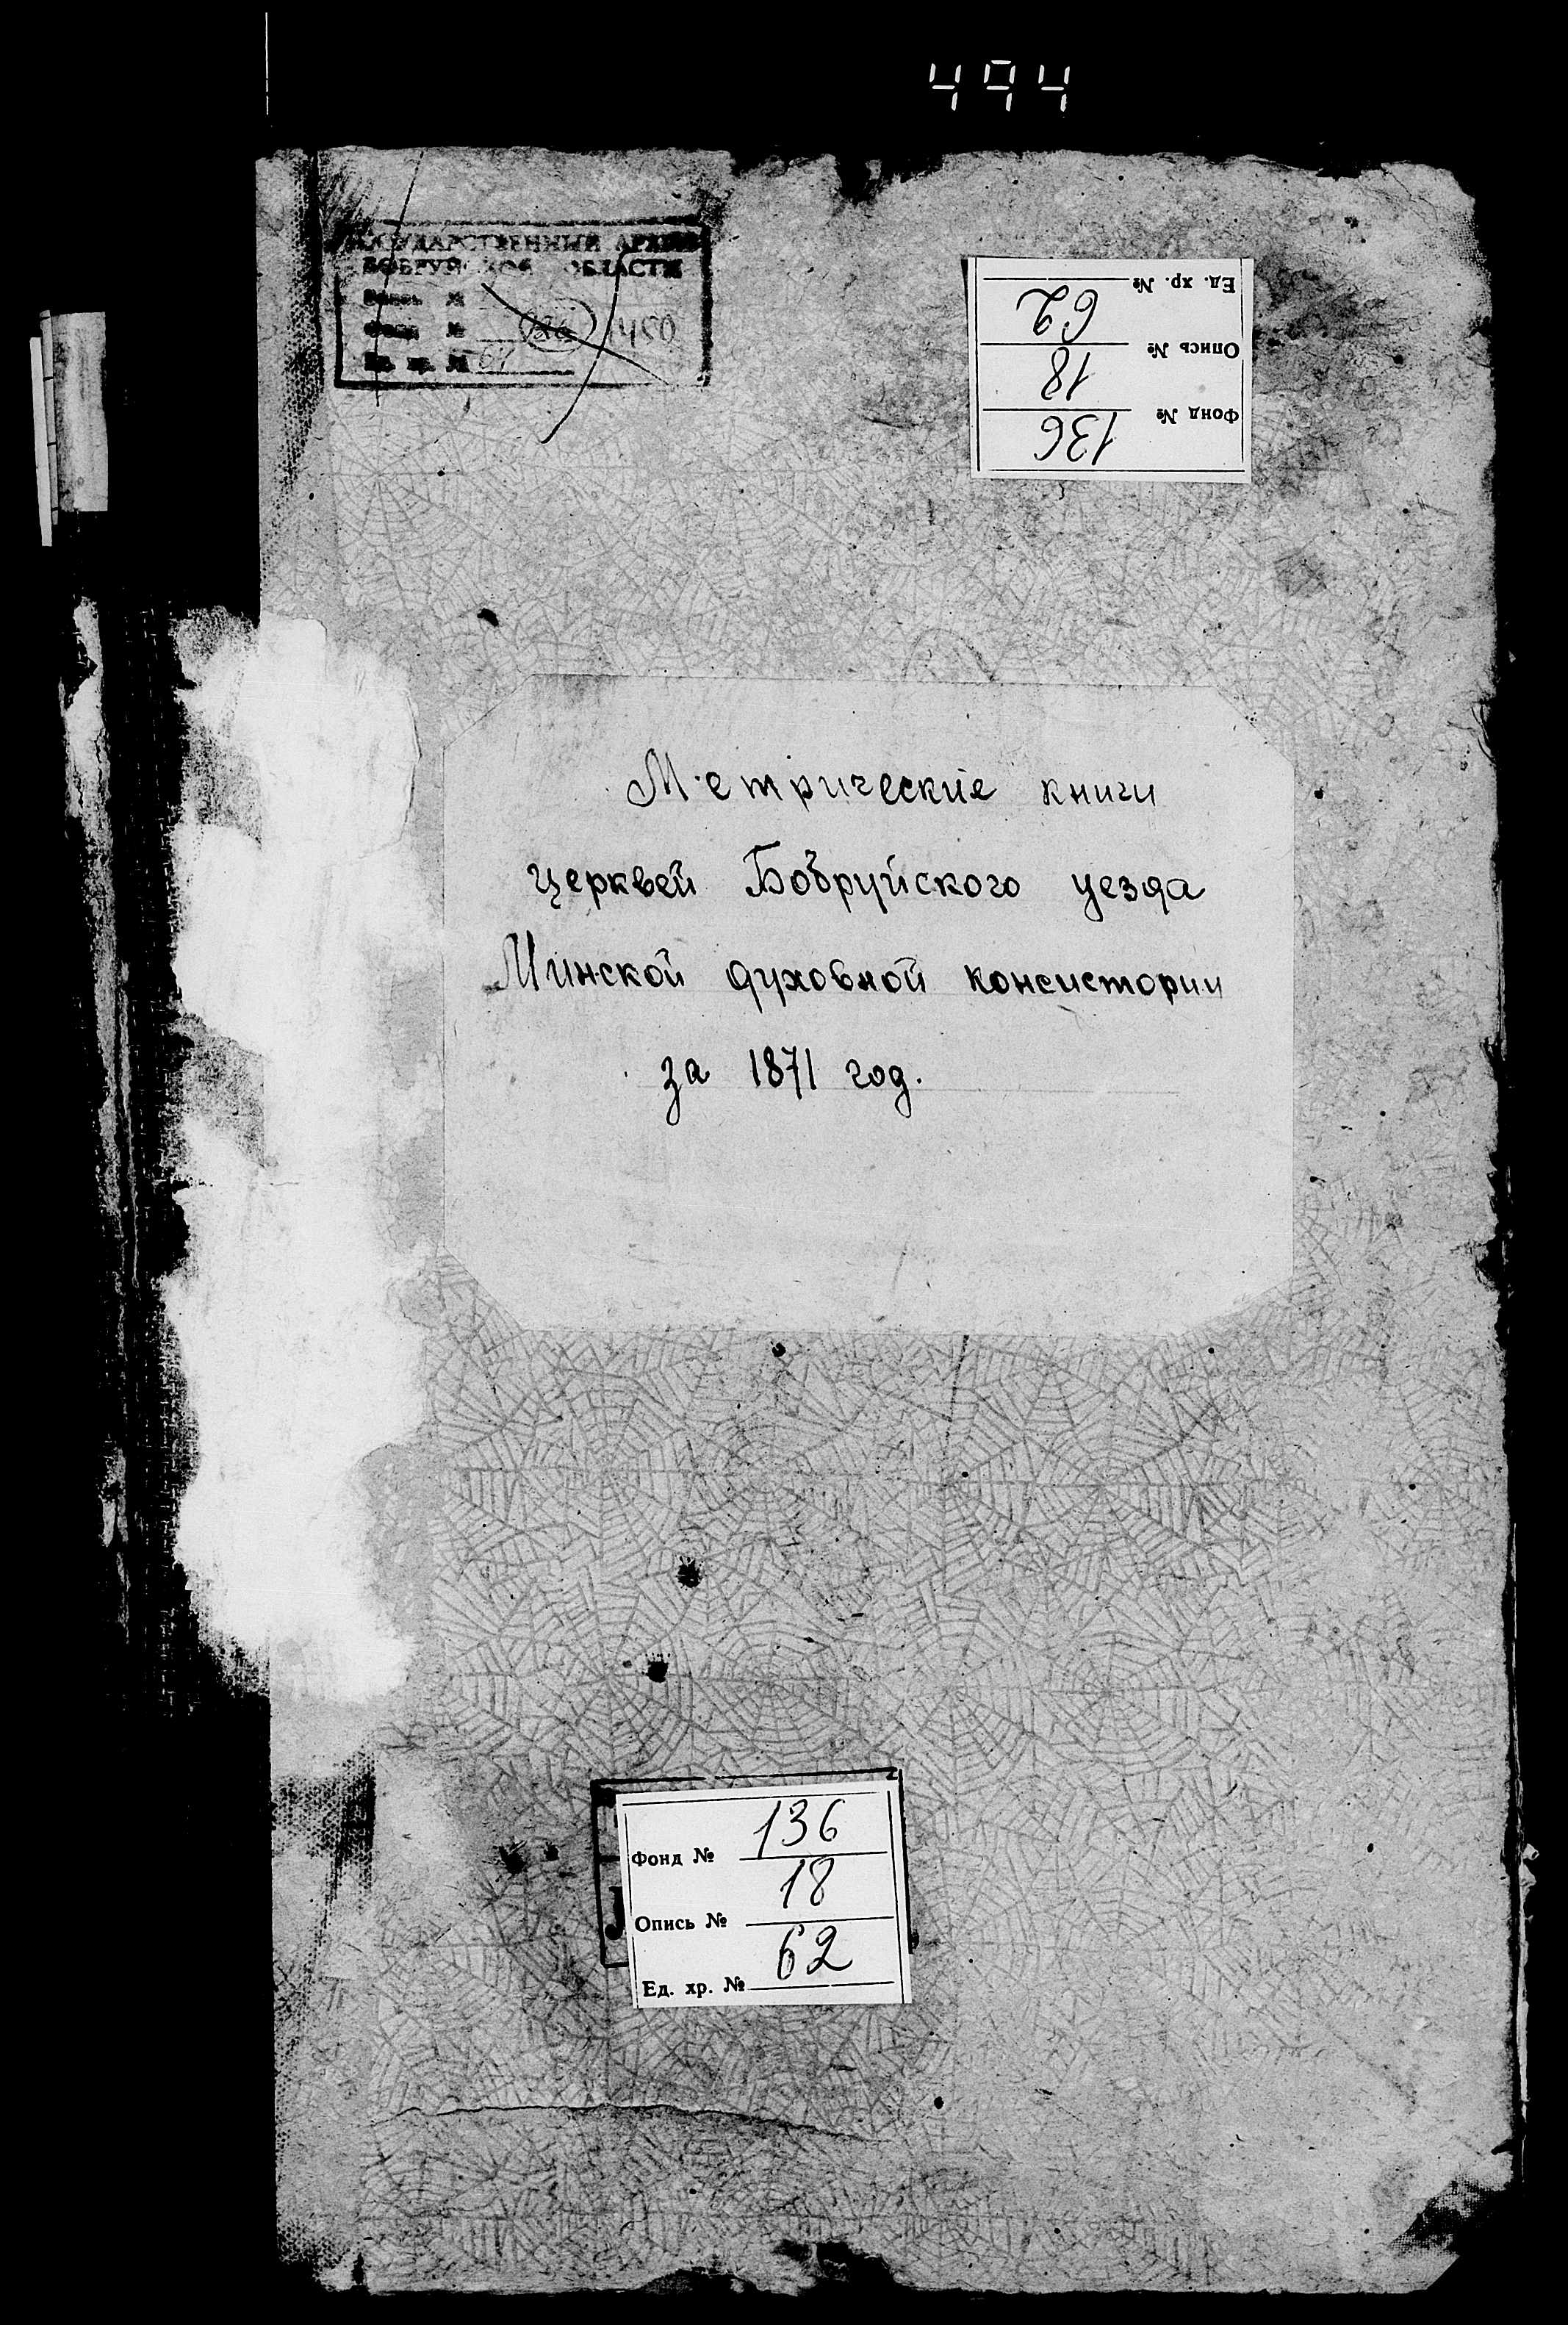 494
ГОСУДАРСТВЕННЫЙ АРХИВ
БОБРУЙСКОЙ ОБЛАСТИ
Опись №
Фонд № 450
Ед. хр. №
Фонд № 136
Опись № 18
Ед. хр. № 62
Метрические книги
церквей Бобруйского уезда
Минской духовной консистории
за 1871 год.
Фонд № 136
Опись № 18
Ед. хр. № 62